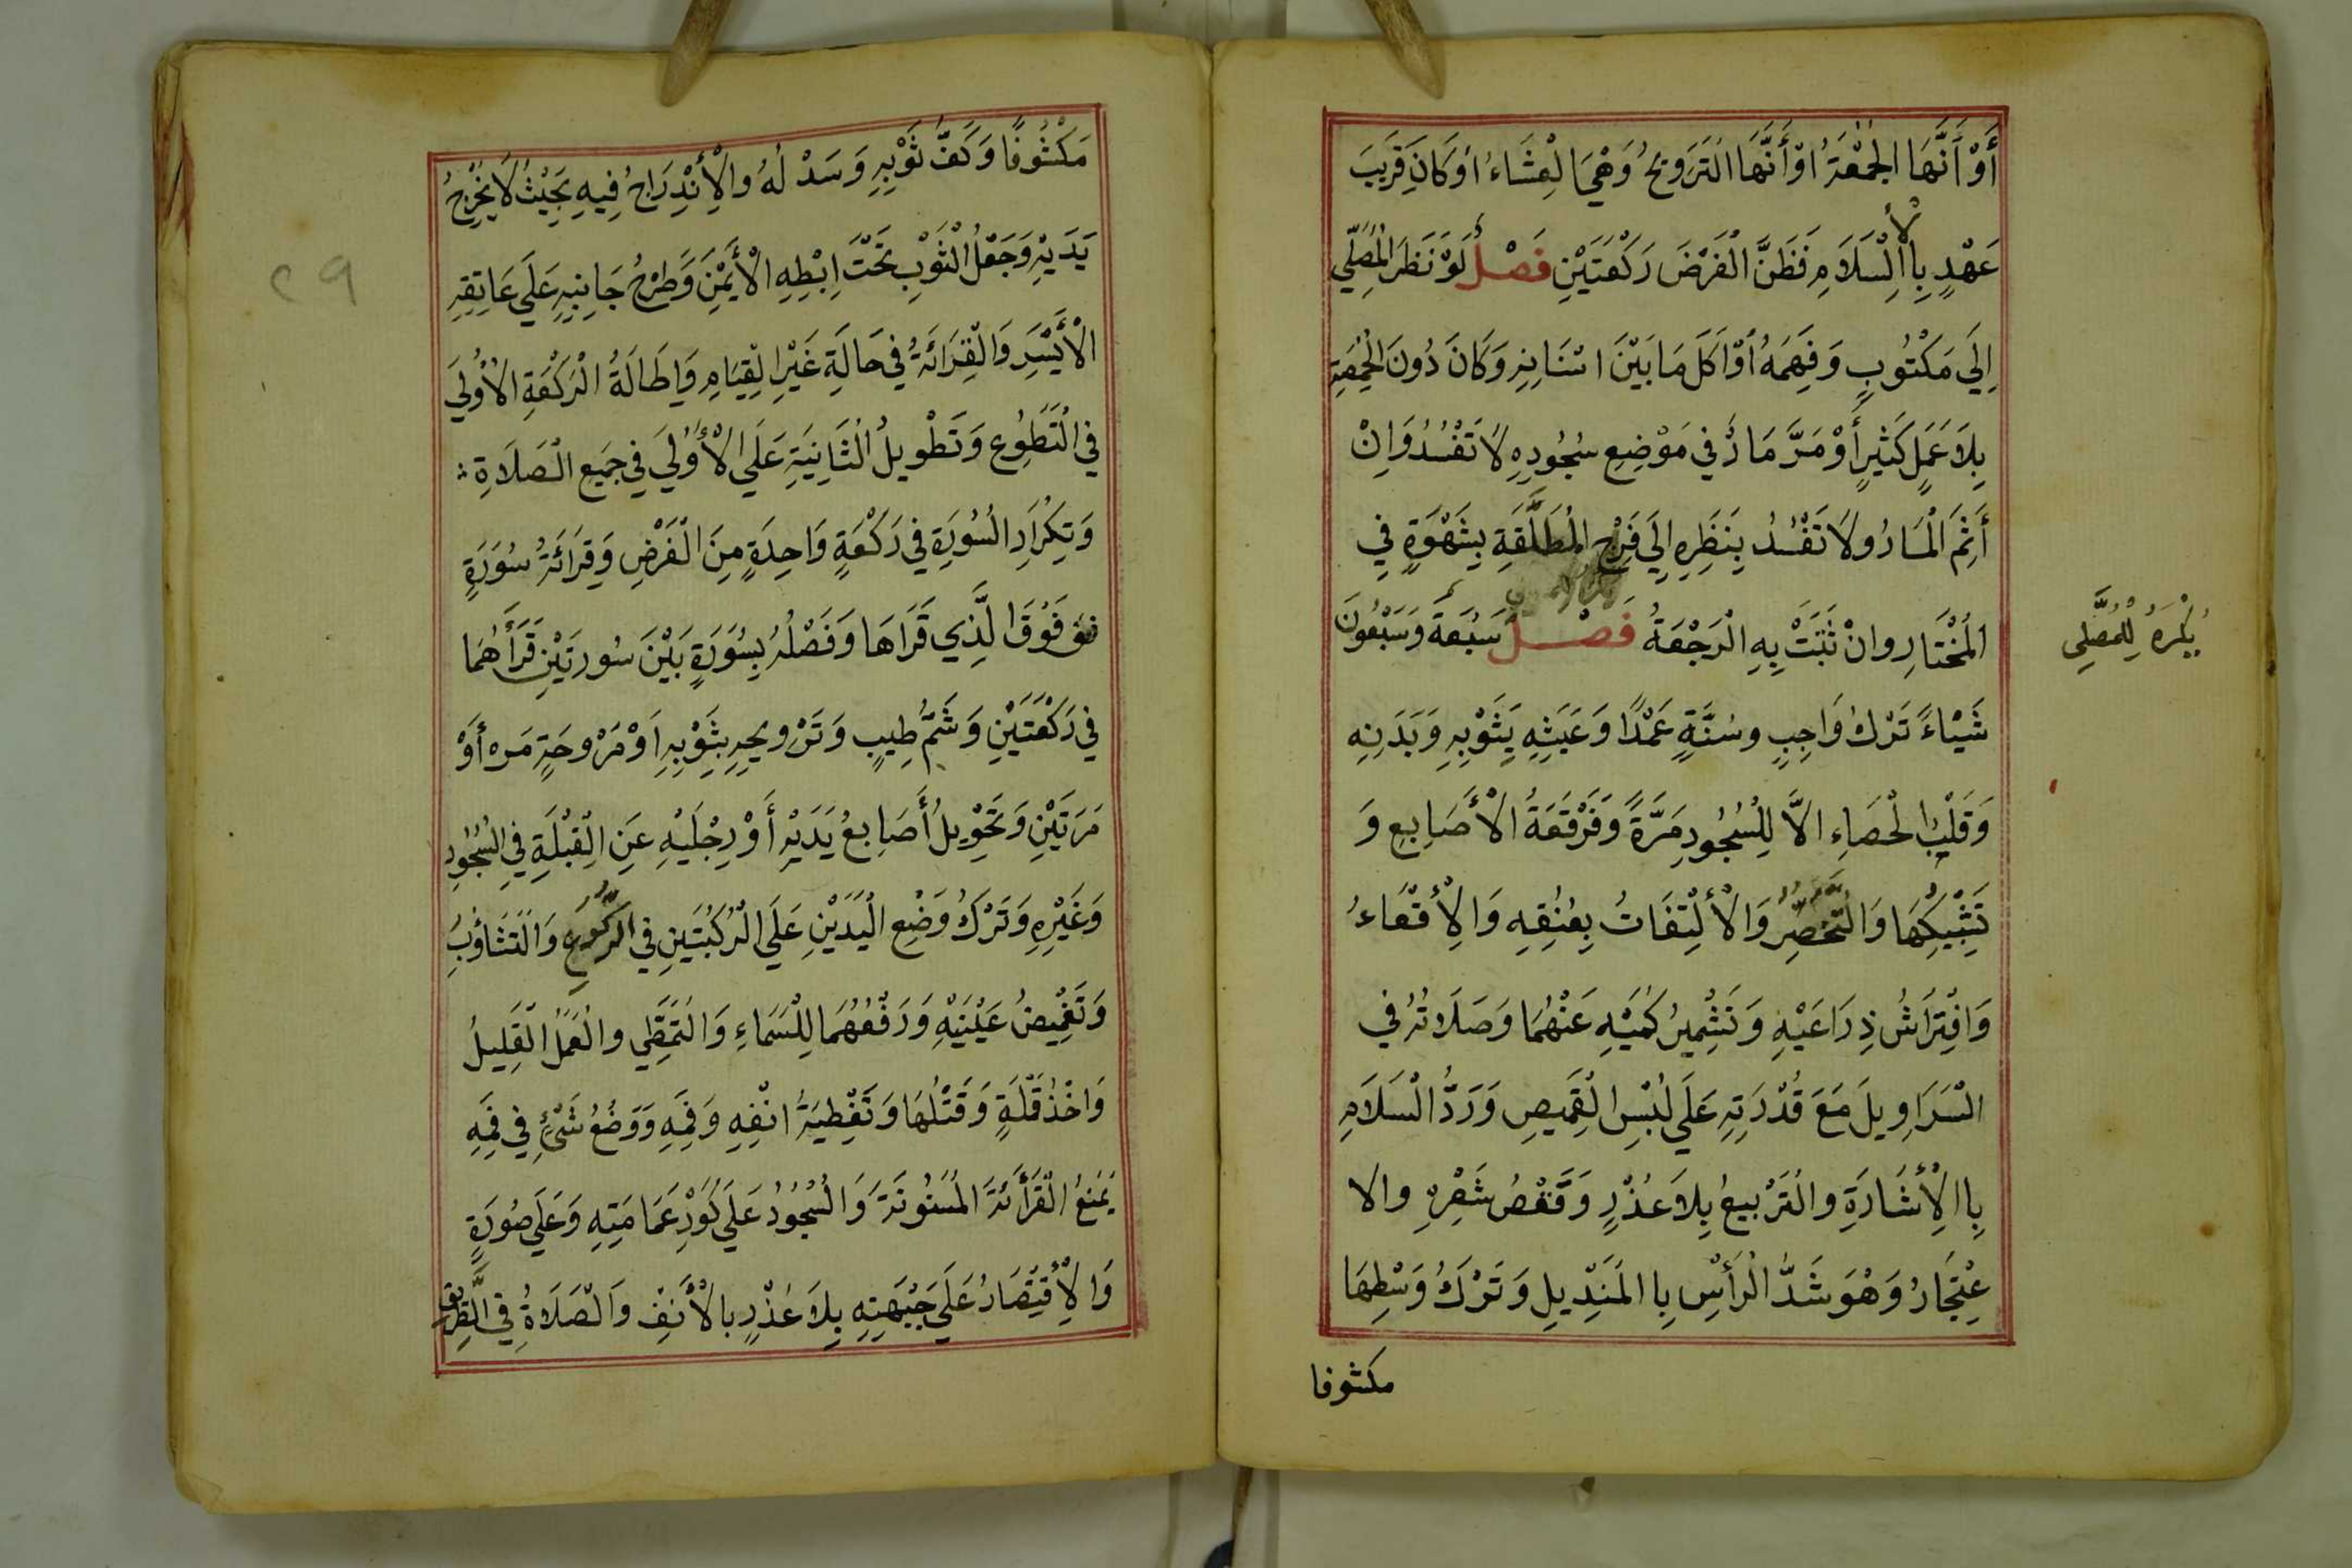 أَوْ أَنَّهَا الْجُمْعَةُ اوْ أَنَّهَا التَّرَوِيحُ وَهْيَ الْعِشَاءُ اوْ كَانَ قَرِيبَ
عَهْدٍ بِالْإِسْلَامِ فَظَنَّ الْفَرْضَ رَكْعَتَيْنِ فَصْلٌ لَوْ نَظَرَ الْمُصَلِّي
اِلَي مَكْتُوبٍ وَفَهِمَهُ اوْ اَكَلَ مَا بَيْنَ اسْنَانِهِ وَكَانَ دُونَ الْحِمَّصَةِ
بِلَا عَمَلٍ كَثِيرٍ أَوْ مَرَّ مَارٌّ في مَوْضِعِ سُجُودِهِ لَا تَفْسُدُ وَاِنْ
أَثِمَ الْمَارُ ولَا تَفْسُدُ بِنَظَرِهِ اِلَي فَرْجِ الْمُطَلَّقَةِ بِشَهْوَةٍ فِي
الْمُخْتَارِ وانْ ثَبَتَتْ بِهِ الْرَجْعَةُ فَصْـــلٌ سَبْعَةَ وَسَبْعُونَ
يُكْرَهُ لِلْمُصَلِّي
شَيْاءً تَرْكُ وَاجِبٍ وسُنَّةٍ عَمْدًا وَعَبَثِهِ بِثَوْبِهِ وَبَدَنِهِ
وَقَلْبُ الْحَصَاءِ الَّا لِلْسُجُودِ مَرَّةً وَفَرْقَعَةُ الْأَصَابِعِ وَ
تَشْبِيكُهَا وَالتَّخَصُّرُ وَالْأِلْتِفَاتُ بِعُنُقِهِ وَالْأِقْعَاءُ
وَافْتِرَاشُ ذِرَاعَيْهِ وَتَشْمِيرُ كُمَّيْهِ عَنْهُمَا وَصَلَاتُهُ في
الْسَرَاوِيلَ مَعَ قُدْرَتِهِ عَلَي لُبْسِ الْقَمِيصِ وَرَدُّ الْسَلَامِ
بِاالْأِشَارَةِ والْتَرْبِيعُ بِلَا عُذْرٍ وَعَقْصُ شَعْرِهِ والا
عِتْجَارُ وَهْوَ شَدُّ الْرَأْسِ بِا الْمَنْدِيلِ وَتَرْكُ وَسْطِهَا
مكشوفا
مَكْشُوفًا وَكَفُّ ثَوْبِهِ وَسَدْلُهُ والْأِنْدِرَاجُ فِيهِ بِحَيْثُ لَا يُخْرِجُ
يَدَيْهِ وَجَعْلُ الْثَوْبِ تَحْتَ اِبْطِهِ الْأَيْمَنِ وَطَرْحُ جَانِبَيْهِ عَلَي عَاتِقِهِ
الْأَيْسَرِ وَالْقِرَائَةُ في حَالَةِ غَيْرِ الْقِيَامِ وَاِطَالَةُ الْرَكْعَةِ الْأُولَي
في الْتَطَوُّعِ وَتَطْوِيلُ الْثَانِيَةِ عَلَي الْأُولَي في جَمِيعِ الْصَلَاةِ
وَتِكْرَارِ الْسُورَةِ في رَكْعَةٍ وَاحِدَةٍ مِنَ الْفَرْضِ وَقِرَائَةُ سُورَةٍ
فَوْقَ الَّذِي قَرَاهَا وَفَصْلُهُ بِسُورَةٍ بَيْنَ سُورَتَيْنِ قَرَأَهُمَا
في رَكْعَتَيْنِ وَشَمُّ طِيبٍ وَتَرْوِيحِهِ بِثَوْبِهِ اَوْ مَرْوحَةٍ مَره أَوْ
مَرَتَيْنِ وَتَحْوِيلُ أَصَابِعُ يَدَيْهِ أَوْ رِجْلَيْهِ عَنِ الْقِبْلَةِ في الْسُجُودِ
وَغَيْرِهِ وَتَرْكُ وَضْعِ الْيَدَيْنِ عَلَي الْرُكْبَتَيْنِ في الرُّكُوعِ وَالْتَثَاؤُبُ
وَتَغْمِيضُ عَيْنَيْهِ وَرَفْعُهُمَا لِلْسَمَاءِ وَالْتَمَطِّي والْعَمَلُ الْقَلِيلُ
وَاخْذُ قَمْلَةٍ وَقَتْلُهَا وَتَغْطِيَةُ انْفِهِ وَفَمِهِ وَوَضْعُ شَيْءٍ في فَمِهِ
يَمْنَعُ الْقَرَأَئَةَ الْمَسْنُونَةَ وَالْسُجُودُ عَلَي كَوْرِ عَمَامَتِهِ وَعَلَي صُورَةٍ
وَالْأِقْتِصَارُ عَلَي جَبْهَتِهِ بِلَا عُذْرٍ بالْأَنْفِ وَالْصَلَاةُ في الطَّرِيقِ
٢٩